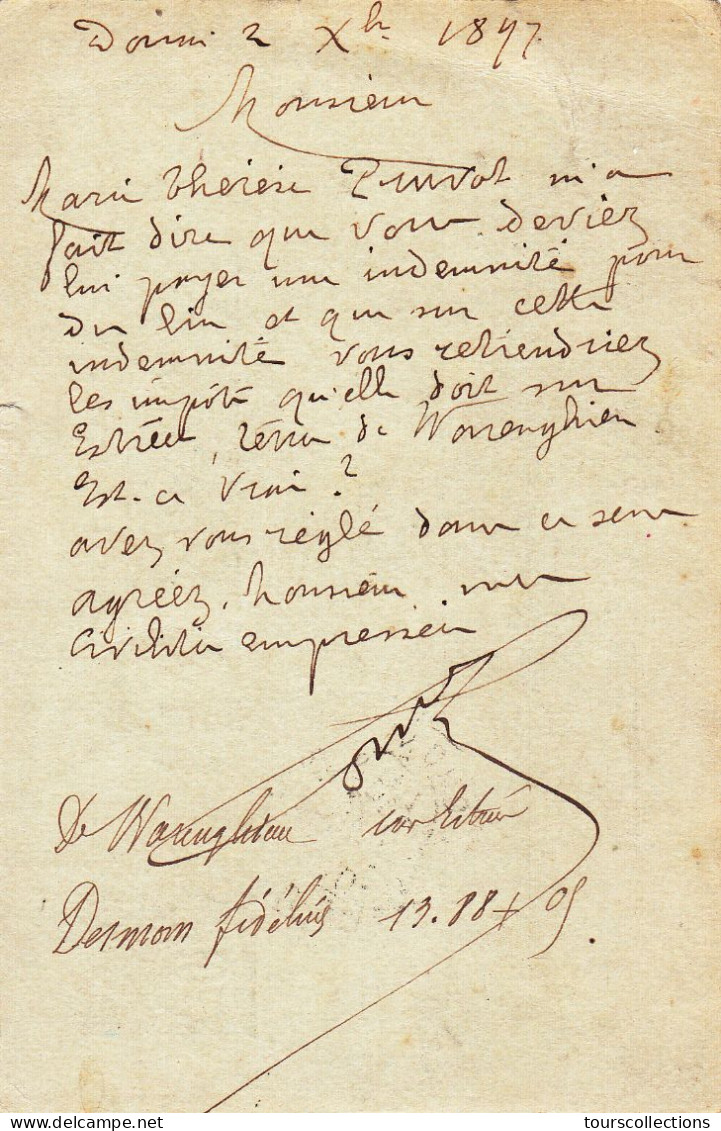 Douai 2 Xbre 1897
Monsieur
Marie Thérèse Pruvot m'a
fait dire que vous deviez
lui payer une indemnité pour
du lin et que sur cette
indemnité vous retiendriez
les impôts qu'elle doit sur
Estrées, terre de Warenghien
Est-ce vrai ?
avez vous réglé dans ce sens
agréez, Monsieur, mes
civilités empressées
De Warenghien sur Estrées
Desmons fidélius 13.88
delcampe.net
tourscollections